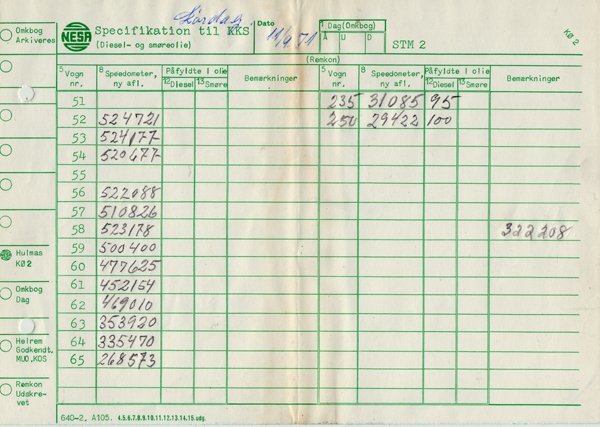 Lördag
Omkbog Arkiveres
NESA Specifikation til KKS Dato 11/9 71 1 Dag (Omkbog) KØ 2
(Diesel- og smøreolie) Ä U D STM 2
(Remkon)
5 Vogn nr. 8 Speedometer, ny afl. Påfyldte l olie 12 Diesel 13 Smøre Bemærkninger 5 Vogn nr. 8 Speedometer, ny afl. Påfyldte l olie 12 Diesel 13 Smøre Bemærkninger
51 235 31085 95
52 524721 250 29422 100
53 524177
54 520677
55
56 522088
57 510826
58 523178 322208
59 500400
60 477625
61 452154
62 469010
63 353920
64 335470
65 268573
Hulmas KØ2
Omkbog Dag
Helrem Godkendt. MUO,KOS
Remkon Udskrevet
640-2. A105. 4.5.6.7.8.9.10.11.12.13.14.15.udg.